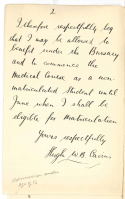 2
I therefore respectfully beg
that I may be allowed to
benefit under the Bursary
and to commence the
Medical Course as a non-
matriculated Student until
June when I shall be
eligible for Matriculation
Yours respectfully
Hugh W.B. Cairns